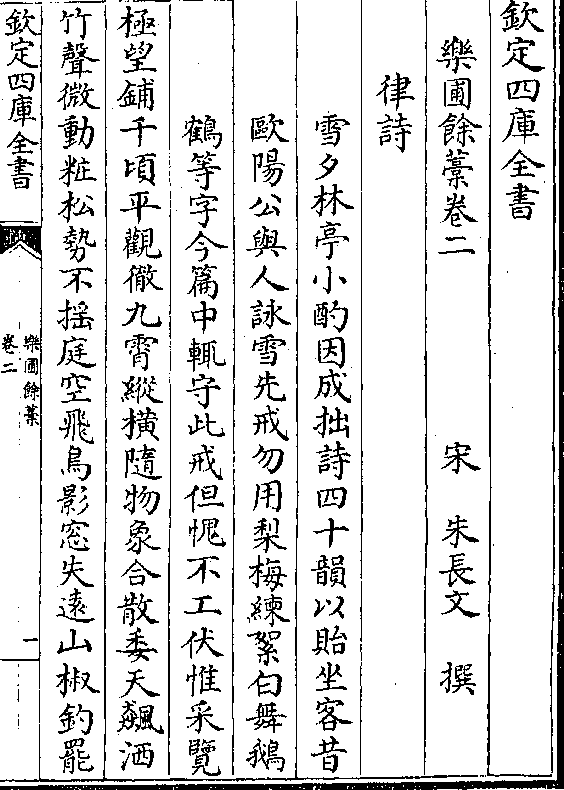 欽定四庫全書
樂圃餘藁卷二
宋 朱長文 撰
律詩
雪夕林亭小酌因成拙詩四十韻以貽坐客昔
歐陽公與人詠雪先戒勿用梨梅練絮白舞鵝
鶴等字今篇中輒守此戒但愧不工伏惟采覽
極望鋪千頃平觀徹九霄縱橫隨物象合散委天飇洒
竹聲微動粧松勢不揺庭空飛鳥影窓失逺山椒釣罷
欽定四庫全書
樂圃餘藁
卷二
一